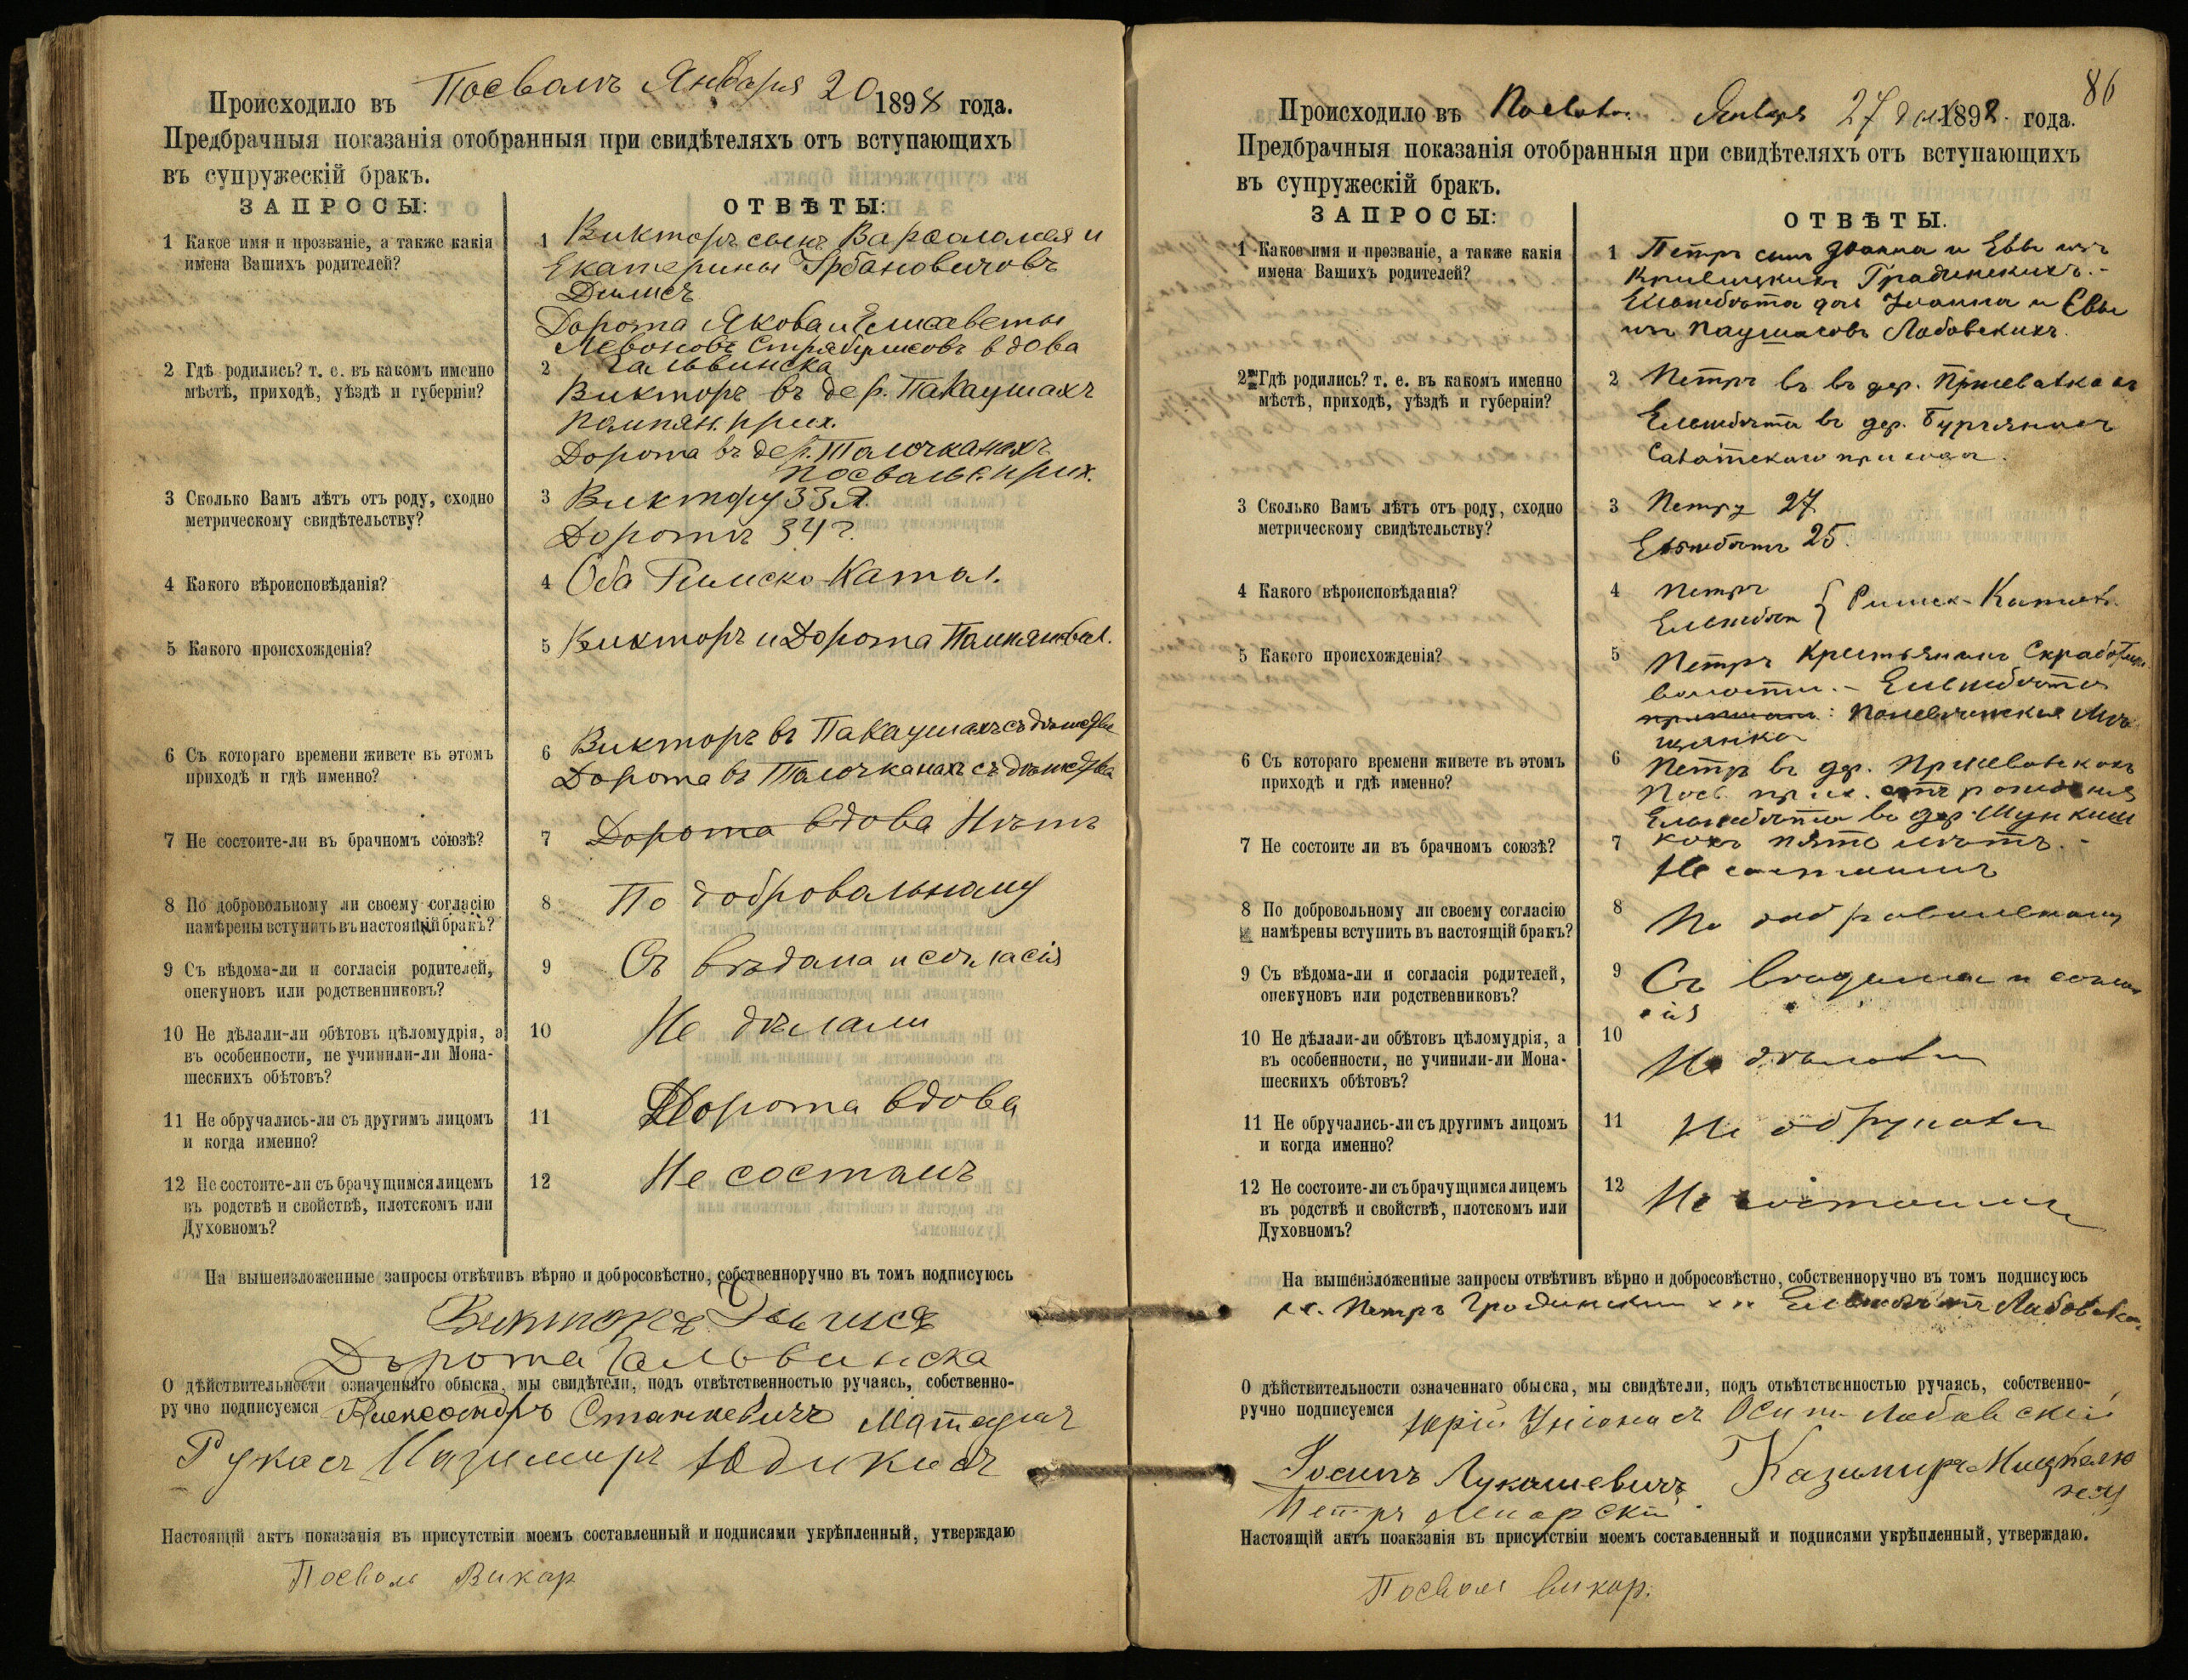 Происходило въ Посволь Января 20 1898 года.
Предбрачныя показанія отобранныя при свидѣтеляхъ отъ вступающихъ
въ супружескій бракъ.
ЗАПРОСЫ:
ОТВѢТЫ:
1 Какое имя и прозваніе, а также какія
имена Вашихъ родителей?
1 Викторъ сынъ Варѳоломея и
Екатерины Урбановичовъ
Дорота Якова и Елисаветы
вдова
2 Гдѣ родились? т. е. въ какомъ именно
мѣстѣ, приходѣ, уѣздѣ и губерніи?
2 Гальвинска
Викторъ въ дер. Пакаушахъ
Помпян. прих.
Дорота въ дер. Талочканахъ
Посвальс. прих.
3 Сколько Вамъ лѣтъ отъ роду, сходно
метрическому свидѣтельству?
3 Виктору 33 л.
Доротѣ 34 г.
4 Какого вѣроисповѣданія?
4 Оба Римско-Катол.
5 Какого происхожденія?
5 Викторъ и Дорота Помпян. вол.
6 Съ котораго времени живете въ этомъ
приходѣ и гдѣ именно?
6 Викторъ въ Пакаушахъ съ дѣтства
Дорота въ Талочканахъ съ дѣтства
7 Не состоите-ли въ брачномъ союзѣ?
7 Дорота вдова Нѣтъ
8 По добровольному ли своему согласію
намѣрены вступить въ настоящій бракъ?
8 По добровальному
9 Съ вѣдома-ли и согласія родителей,
опекуновъ или родственниковъ?
9 Съ вѣдома и согласія
10 Не дѣлали-ли обѣтовъ цѣломудрія, а
въ особенности, не учинили-ли Мона-
шескихъ обѣтовъ?
10 Не дѣлали
11 Не обручались-ли съ другимъ лицомъ
и когда именно?
11 Дорота вдова
12 Не состоите-ли съ брачущимся лицемъ
въ родствѣ и свойствѣ, плотскомъ или
Духовномъ?
12 Не состоимъ
На вышеизложенные запросы отвѣтивъ вѣрно и добросовѣстно, собственноручно въ томъ подписуюсь
Викторъ
Дорота Гальвинска
О дѣйствительности означеннаго обыска, мы свидѣтели, подъ отвѣтственностью ручаясь, собственно-
ручно подписуемся Александръ Станкевичъ
Казимиръ Юдикисъ
Настоящій актъ показанія въ присутствіи моемъ составленный и подписями укрѣпленный, утверждаю
Посволь Викар
86
Происходило въ Посвол. Января 27 дня 1898. года.
Предбрачныя показанія отобранныя при свидѣтеляхъ отъ вступающихъ
въ супружескій бракъ.
ЗАПРОСЫ:
ОТВѢТЫ.
1 Какое имя и прозваніе, а также какія
имена Вашихъ родителей?
1 Петръ сынъ Іоанна и Евы изъ
Гродинскихъ.-
Ельжбѣта дочь Іоанна и Евы
изъ Лабовскихъ.
2 Гдѣ родились? т. е. въ какомъ именно
мѣстѣ, приходѣ, уѣздѣ и губерніи?
2 Петръ въ въ дер.
Ельжбѣта въ дер.
прихода.
3 Сколько Вамъ лѣтъ отъ роду, сходно
метрическому свидѣтельству?
3 Петру 27
Ельжбѣтѣ 25.
4 Какого вѣроисповѣданія?
4 Петръ
Ельжбѣта } Римск-Катол.
5 Какого происхожденія?
5 Петръ Крестьянинъ
волости. - Ельжбѣта
Поневѣжская Мѣ-
щанка
6 Съ котораго времени живете въ этомъ
приходѣ и гдѣ именно?
6 Петръ въ дер.
Посв. прих. отъ рожденія
Ельжбѣта въ дер.
пять лѣтъ.-
7 Не состоите ли въ брачномъ союзѣ?
7 Не состоимъ
8 По добровольному ли своему согласію
намѣрены вступить въ настоящій бракъ?
8 По добровольному
9 Съ вѣдома-ли и согласія родителей,
опекуновъ или родственниковъ?
9 Съ вѣдома и соглас
ія
10 Не дѣлали-ли обѣтовъ цѣломудрія, а
въ особенности, не учинили-ли Мона-
шескихъ обѣтовъ?
10 Не дѣлали
11 Не обручались-ли съ другимъ лицомъ
и когда именно?
11 Не обручали
12 Не состоите-ли съ брачущимся лицемъ
въ родствѣ и свойствѣ, плотскомъ или
Духовномъ?
12 Не состоимъ
На вышеизложенные запросы отвѣтивъ вѣрно и добросовѣстно, собственноручно въ томъ подписуюсь
Петръ Гродински Ельжбѣта Лабовска
О дѣйствительности означеннаго обыска, мы свидѣтели, подъ отвѣтственностью ручаясь, собственно-
ручно подписуемся Юрій Осипъ Лабовскій
Іосипъ Лукашевичъ Казимиръ
Петръ
Настоящій актъ поакзанія въ присутствіи моемъ составленный и подписями укрѣпленный, утверждаю.
Посволь викар.